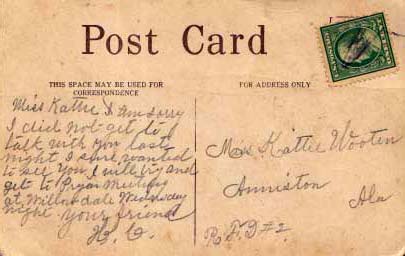 Post Card
THIS SPACE MAY BE USED FOR
CORRESPONDENCE
FOR ADDRESS ONLY
Miss Kattie I am sorry
I did not get to
talk with you last
night I sure wanted
to see you I will try and
get to Pryar Meeting
at Willowdale Wednesday
night your friend
H. O.
Miss Kattie Wooten
Anniston
Ala
R. F. D #2